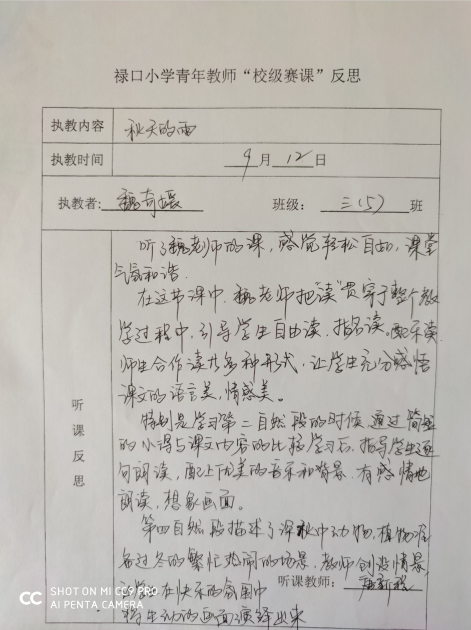 禄口小学青年教师“校级赛课”反思
执教内容 秋天的雨
执教时间 9 月 12 日
执教者: 魏奇 班级: 三(5) 班
听课反思
听了魏老师的课，感觉轻松自如，课堂
气氛和谐.
在这节课中，魏老师把“读”贯穿于整个教
学过程中，引导学生自由读、指名读、配乐读、
师生合作读等多种形式，让学生充分感悟
课文的语言美，情感美。
特别是学习第二自然段的时候，通过简短
的小诗与课文内容的比较学习后，指导学生逐
句朗读，配上优美的音乐和背景，有感情地
朗读，想象画面。
第四自然段描述了深秋中动物，植物准
备过冬的繁忙热闹的场景，教师创设情景，
让学生在快乐的氛围中
将生动的画面演绎出来
听课教师:
SHOT ON MI CC9 PRO
AI PENTA CAMERA